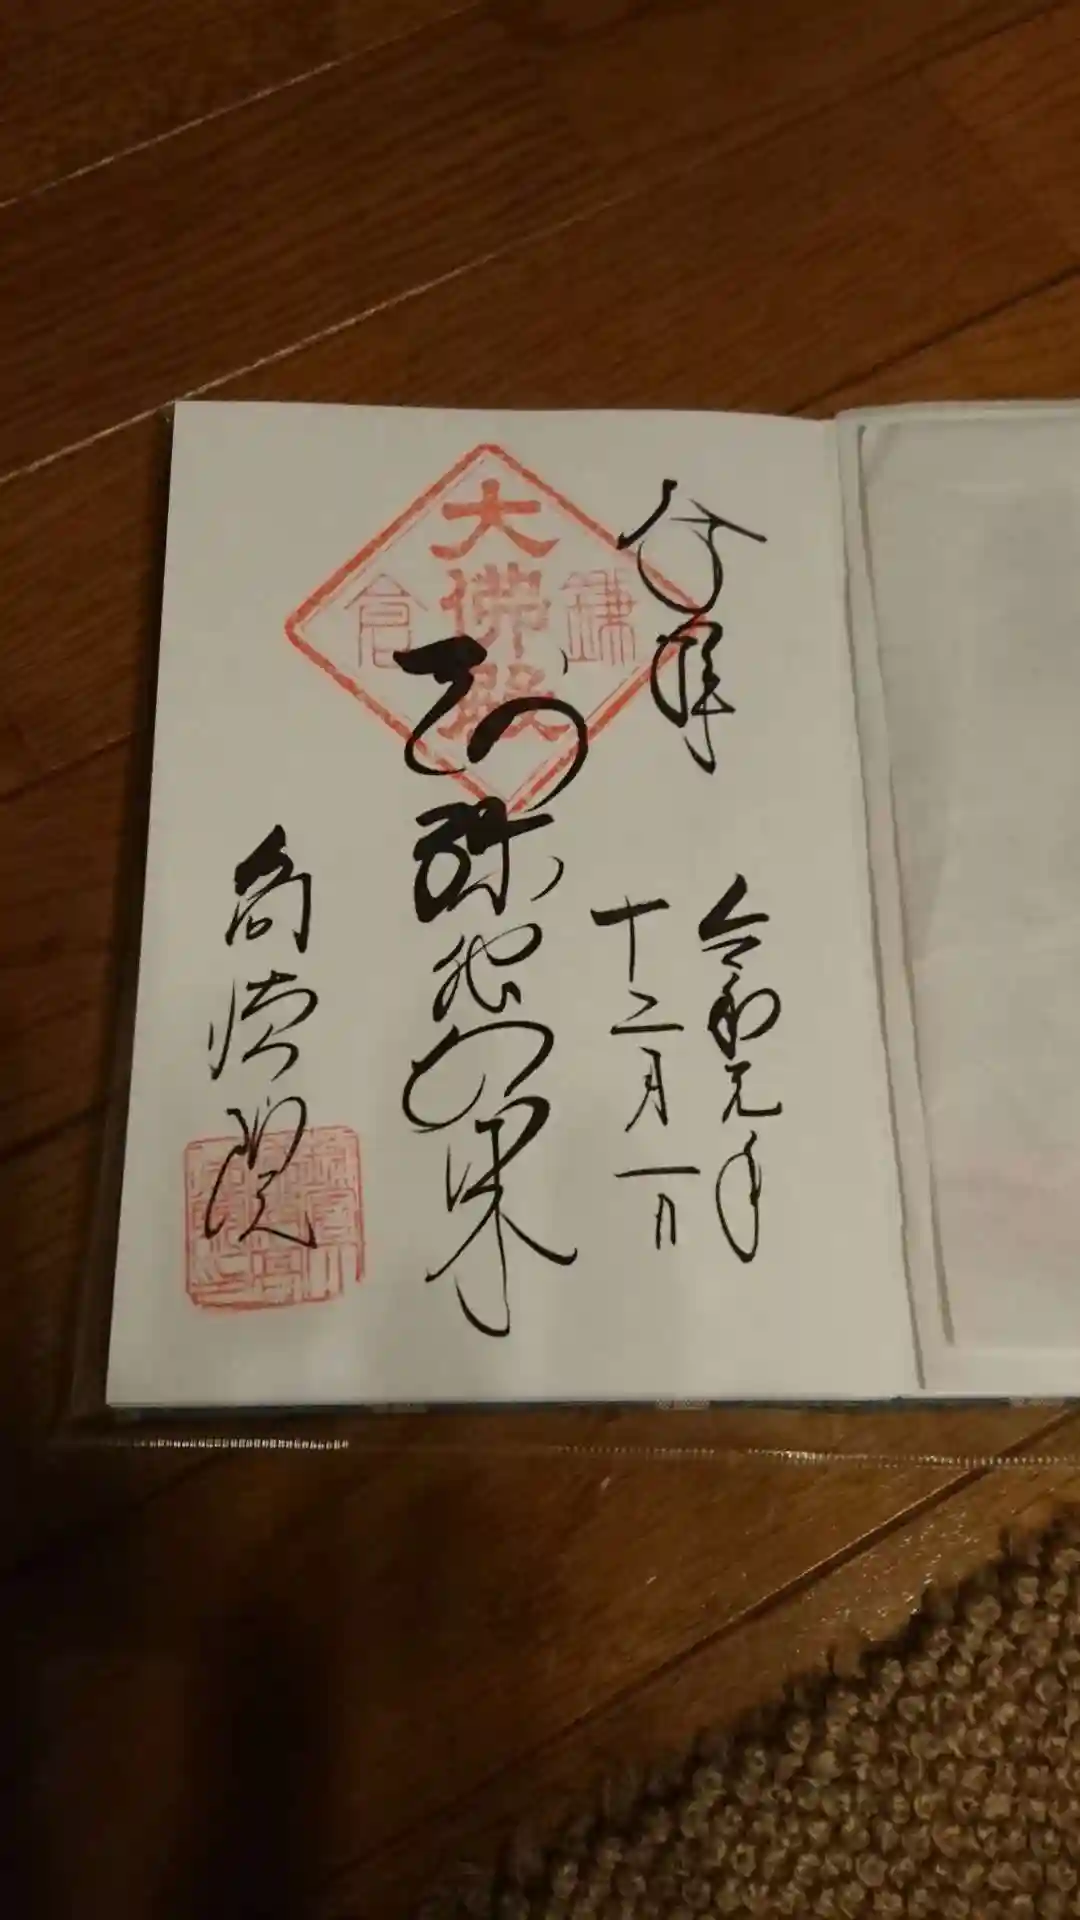 奉拝
令和元年
十二月一日
大佛殿
鎌倉
阿弥陀如来
高徳院